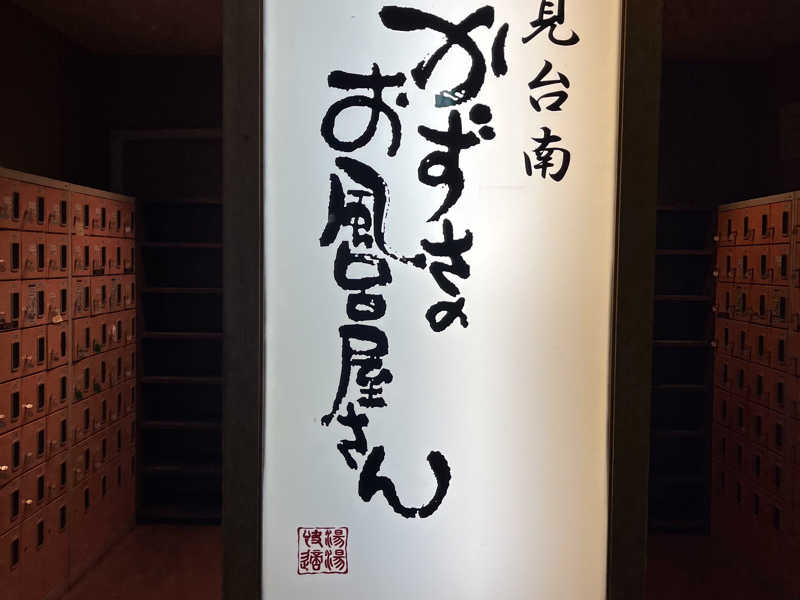 見台南
かずさの
お風呂屋さん
湯湯
快適